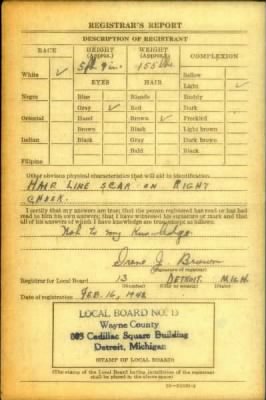 REGISTRAR'S REPORT
DESCRIPTION OF REGISTRANT
RACE HEIGHT (Approx.) WEIGHT (Approx.) COMPLEXION
White ✓ 5 ft 9 in. 155 lbs. Sallow
EYES HAIR Light ✓
Negro Blue Blonde Ruddy
Gray ✓ Red Dark
Oriental Hazel Brown ✓ Freckled
Brown Black Light brown
Indian Black Gray Dark brown
Bald Black
Filipino
Other obvious physical characteristics that will aid in identification
HAIR LINE SCAR ON RIGHT
CHEEK.
I certify that my answers are true; that the person registered has read or has had
read to him his own answers; that I have witnessed his signature or mark and that
all of his answers of which I have knowledge are true, except as follows:
Not to my knowledge
Brown
(Signature of registrar)
Registrar for Local Board 13 DETROIT. MICH.
(Number) (City or county) (State)
Date of registration FEB. 16, 1942
LOCAL BOARD NO. 13
Wayne County
805 Cadillac Square Building
Detroit, Michigan
(STAMP OF LOCAL BOARD)
(The stamp of the Local Board having jurisdiction of the registrant
shall be placed in the above space.)